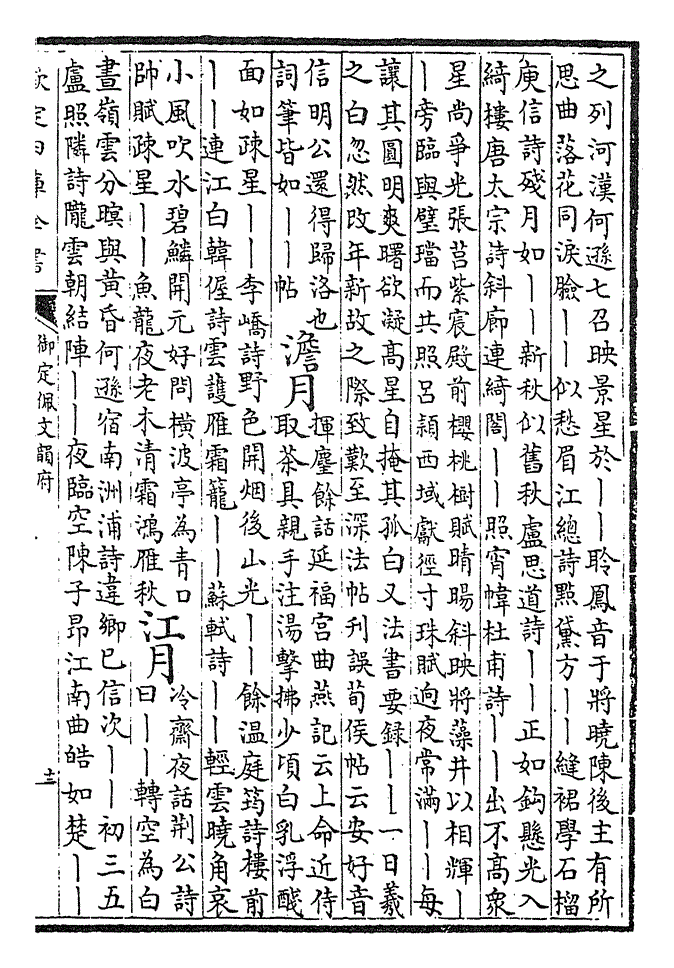 之列河漢何遜七召映景星於——聆鳳音于將曉陳後主有所
思曲落花同淚臉——似愁眉江總詩點黛方——縫裙學石榴
庾信詩殘月如——新秋似舊秋盧思道詩——正如鈎懸光入
綺樓唐太宗詩斜廊連綺閣——照宵幃杜甫詩——出不高衆
星尚爭光張莒紫宸殿前櫻桃樹賦晴暘斜映將藻井以相輝—
—旁臨與璧璫而共照呂頴西域獻徑寸珠賦逈夜常滿——每
讓其圓明爽曙欲凝高星自掩其孤白又法書要録——一日羲
之白忽然改年新故之際致歎至深法帖刋誤荀侯帖云安好音
信明公還得歸洛也
詞筆皆如——帖
澹月
揮麈餘話延福宫曲燕記云上命近侍
取茶具親手注湯擊拂少頃白乳浮醆
面如疎星——李嶠詩野色開烟後山光——餘温庭筠詩樓前
——連江白韓偓詩雲護雁霜籠——蘇軾詩——輕雲曉角哀
小風吹水碧鱗開元好問横波亭為青口
帥賦疎星——魚龍夜老木清霜鴻雁秋
江月
冷齋夜話荆公詩
曰——轉空為白
晝嶺雲分暝與黄昏何遜宿南洲浦詩違鄉已信次——初三五
盧照隣詩隴雲朝結陣——夜臨空陳子昂江南曲皓如楚——
欽定四庫全書
御定佩文韻府
十三